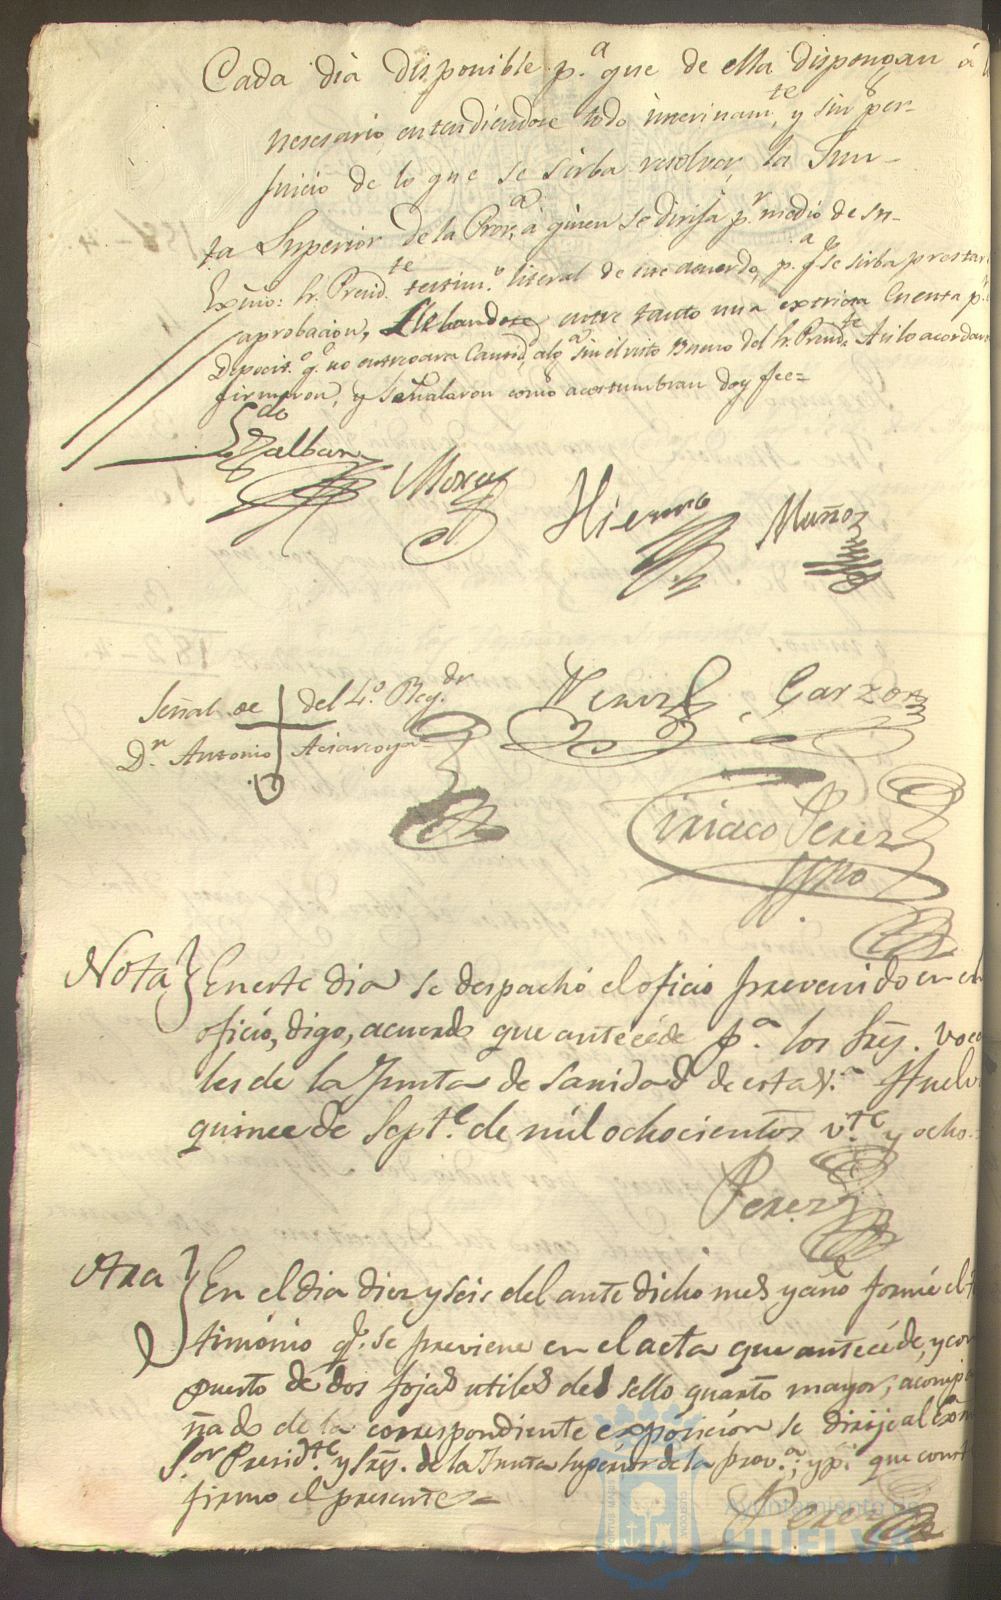 Cada dia disponible p.ª que de ella dispongan á
nesesario, entendiendose todo interinam.te y sin per-
juicio de lo que se sirba resolver la Jun-
ta Superior de la Prov.ª á quien se dirija p.r medio de su
Exmo: Sr. Presid.te testim.º literal de este acuerdo, p.ª q.e se sirba prestar
aprobacion, llebandose entre tanto una extricta Cuenta p.r
Deposit.º q.e no entregara Cantid. alg.ª sin el visto Bueno del Sr. Presid.te Asi lo acordaron
firmaron, y señalaron como acostumbran doy fee=
Lz.do
Zalban
Mora
Hierro
Muñoz
Señal de del 4.º Reg.dr
D.n Antonio
Garzon
Ciriaco Perez
Nota Eneste dia se despachó el oficio prevenido en el
oficio, digo, acuerdo que antecéde p.ª los Sres. voca
les de la Junta de Sanidad de esta V.ª Huelv
quince de Sept.e de mil ochocientos v.te y ocho.=
Perez
Otra En el dia diez y seis del antedicho mes y año formé el t
timónio q.e se previene en el acta que antecéde, y com
puesto de dos fojas utiles del sello quarto mayor, acompa
ñado de la correspondiente exposición se dirije al Exm
S.or Presid.te y Sres. de la Junta Superiór de la prov.ª; y p.ª que const
firmo el presente=
Perez
Ayuntamiento de
HUELVA